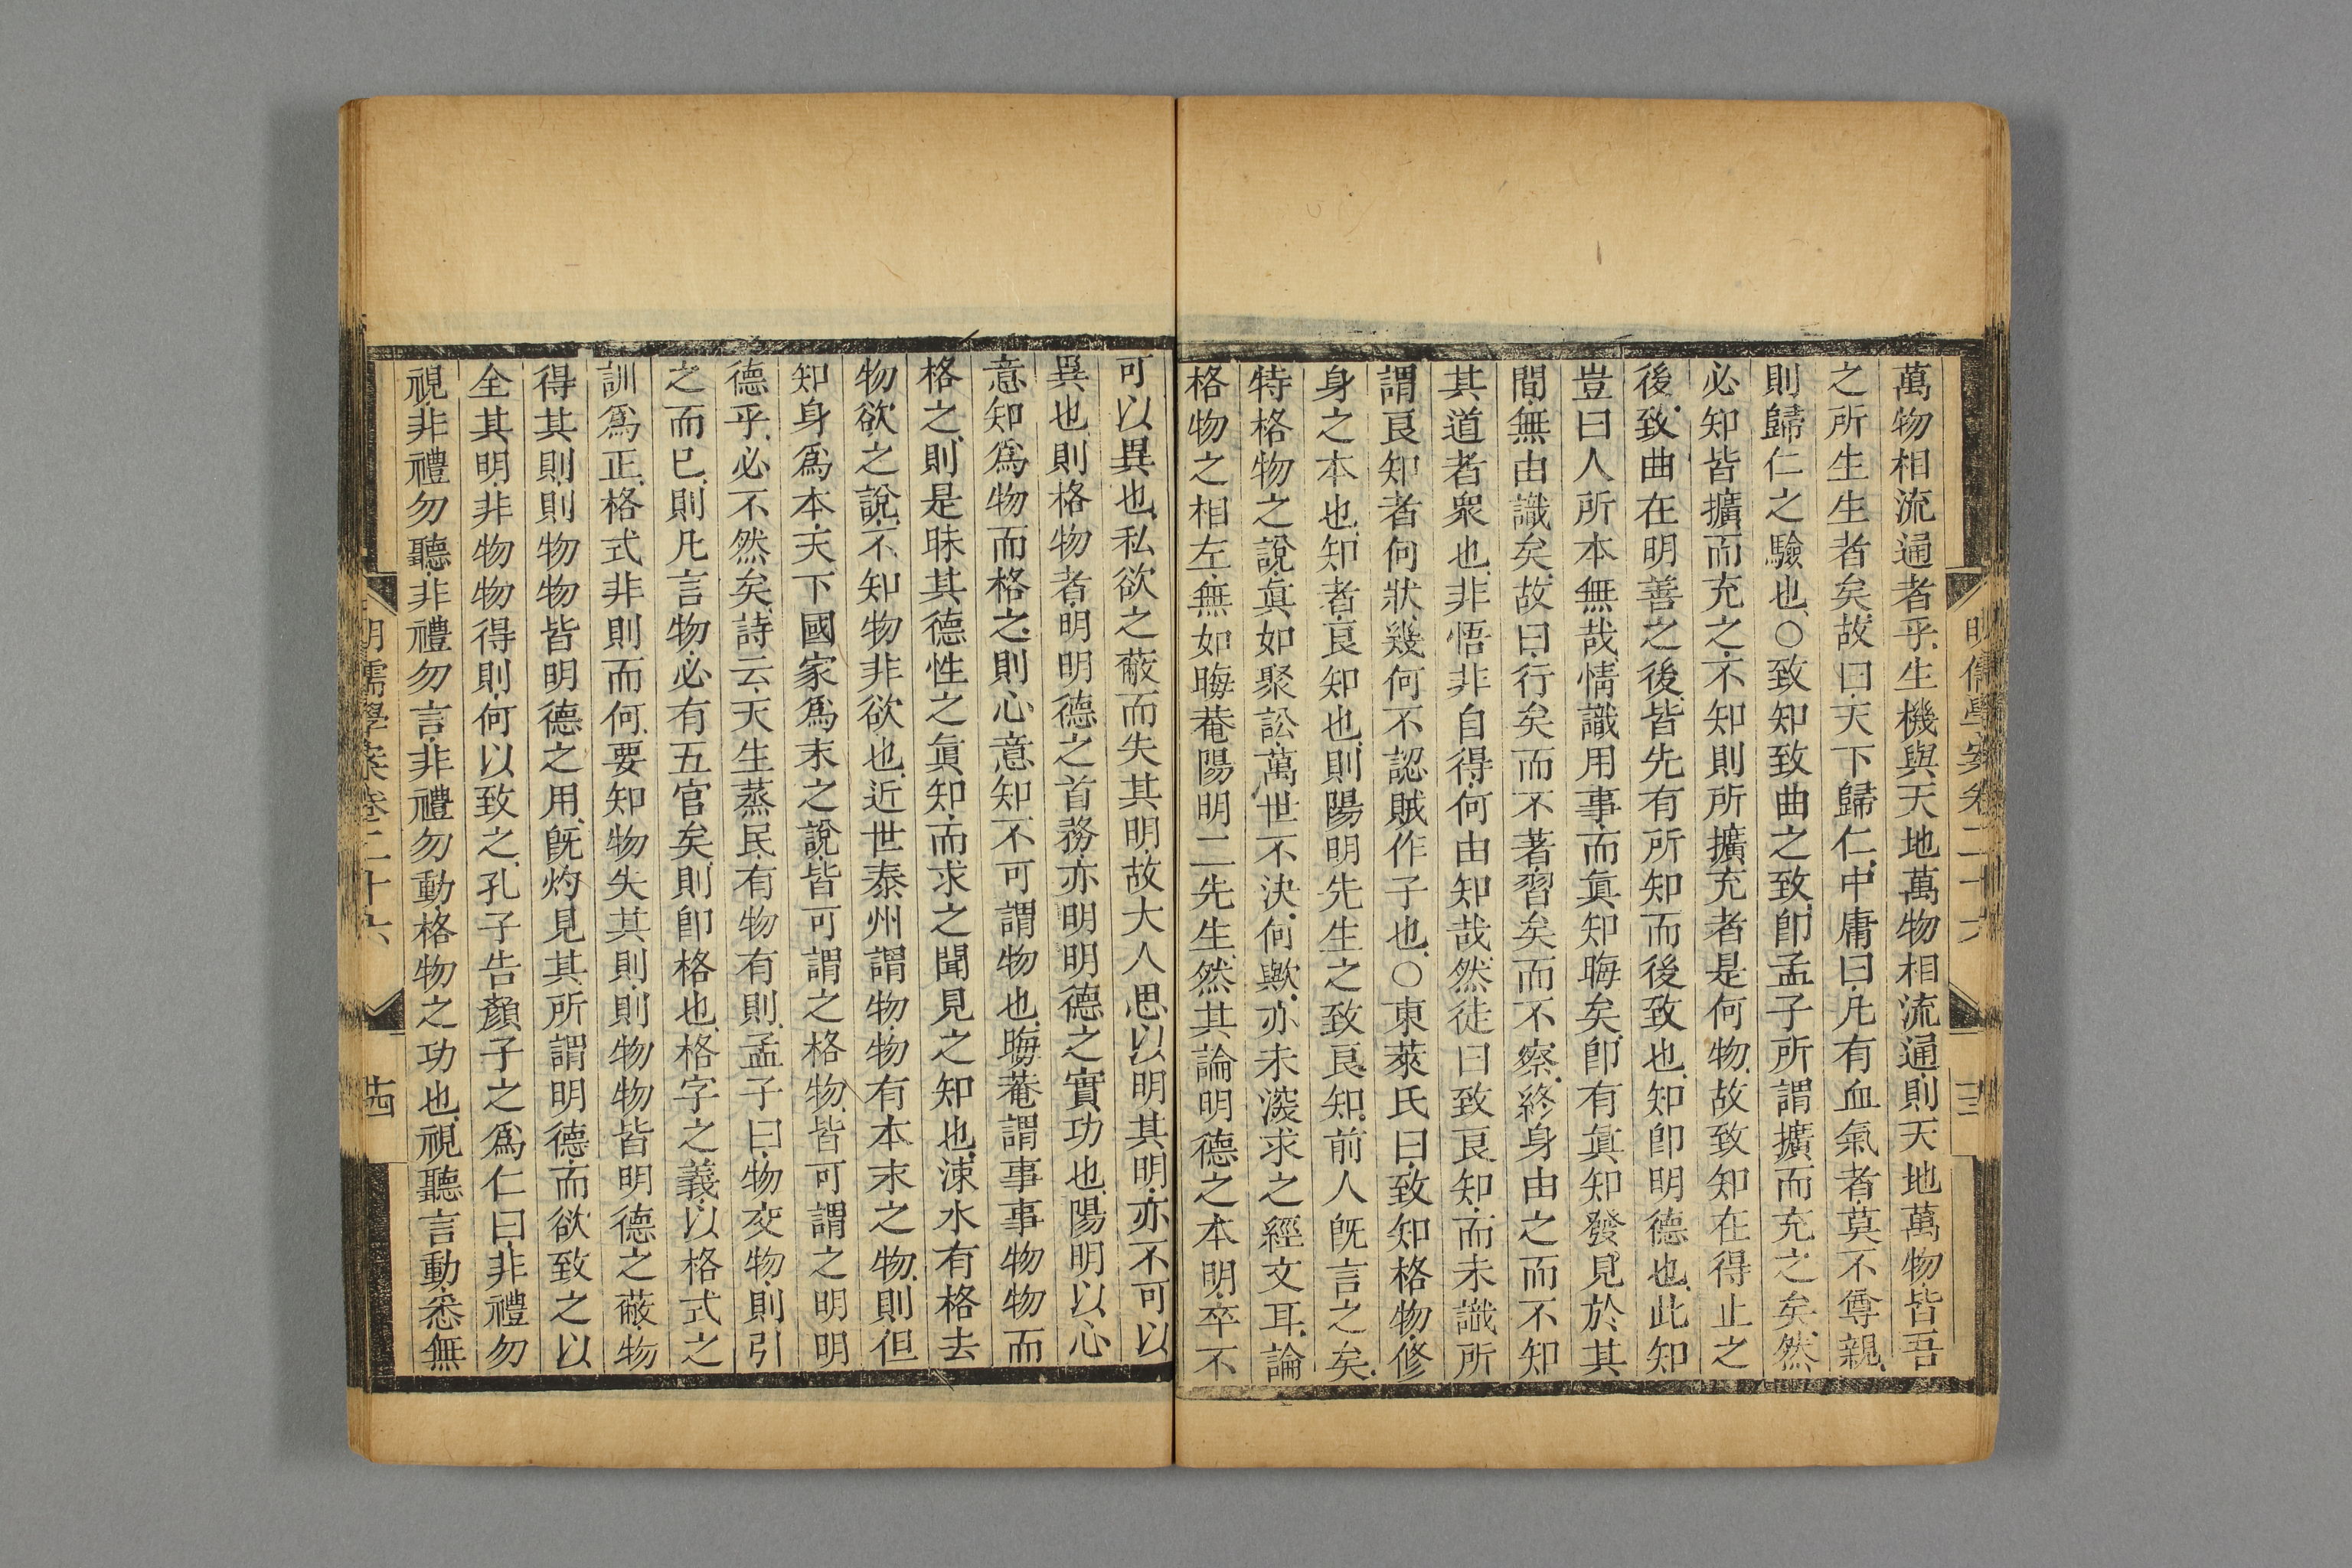 明儒學案卷二十六
十三
萬物相流通者乎生機與天地萬物相流通則天地萬物皆吾
之所生生者矣故曰天下歸仁中庸曰凡有血氣者莫不尊親
則歸仁之驗也○致知致曲之致卽孟子所謂擴而充之矣然
必知皆擴而充之不知則所擴充者是何物故致知在得止之
後致曲在明善之後皆先有所知而後致也知卽明德也此知
豈曰人所本無哉情識用事而眞知晦矣卽有眞知發見於其
間無由識矣故曰行矣而不著習矣而不察終身由之而不知
其道者衆也非悟非自得何由知哉然徒曰致良知而未識所
謂良知者何狀幾何不認賊作子也○東萊氏曰致知格物修
身之本也知者良知也則陽明先生之致良知前人旣言之矣
特格物之說眞如聚訟萬世不決何歟亦未深求之經文耳論
格物之相左無如晦菴陽明二先生然其論明德之本明卒不
可以異也私欲之蔽而失其明故大人思以明其明亦不可以
異也則格物者明明德之首務亦明明德之實功也陽明以心
意知爲物而格之則心意知不可謂物也晦菴謂事事物物而
格之則是昧其德性之眞知而求之聞見之知也涑水有格去
物欲之說不知物非欲也近世泰州謂物物有本末之物則但
知身爲本天下國家爲末之說皆可謂之格物皆可謂之明明
德乎必不然矣詩云天生蒸民有物有則孟子曰物交物則引
之而已則凡言物必有五官矣則卽格也格字之義以格式之
訓爲正格式非則而何要知物失其則則物物皆明德之蔽物
得其則則物物皆明德之用旣灼見其所謂明德而欲致之以
全其明非物物得則何以致之孔子告顏子之爲仁曰非禮勿
視非禮勿聽非禮勿言非禮勿動格物之功也視聽言動悉無
明儒學案卷二十六
十四